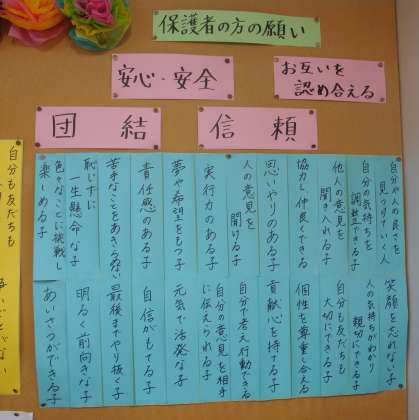 保護者の方の願い
安心・安全
お互いを
認め合える
団結
信頼
自分や人の良さを
見つけていく人
自分の気持ちを
調整できる子
他人の意見を
聞き入れる子
協力し、仲良くできる子
思いやりのある子
人の意見を
聞ける子
実行力のある子
夢や希望をもつ子
責任感のある子
苦手なことをあきらめない子
恥じずに
一生懸命な子
色々なことに挑戦し
楽しめる子
笑顔を忘れない子
人の気持ちがわかり
親切にできる子
自分も友だちも
大切にできる子
個性を尊重し合える子
貢献心を持てる子
自分で考え行動できる子
自分の意見を相手
に伝えられる子
元気で活発な子
自信がもてる子
最後までやり抜く子
明るく前向きな子
あいさつができる子
自分も友だちも